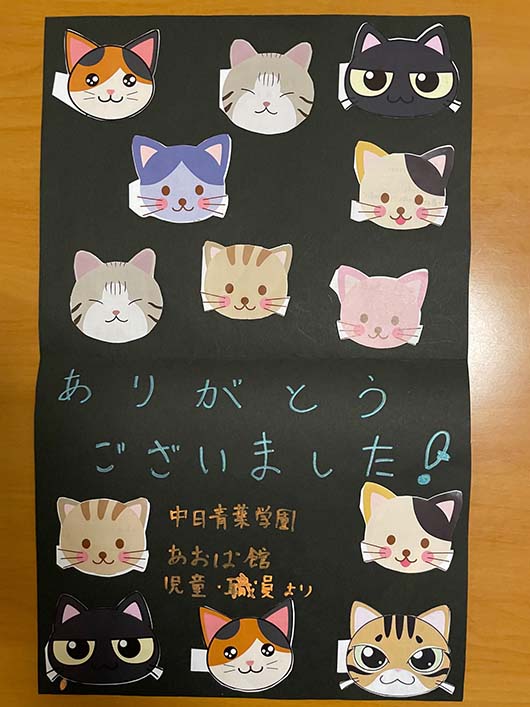 ありがとう
ございました!
中日青葉学園
あおば館
児童・職員より